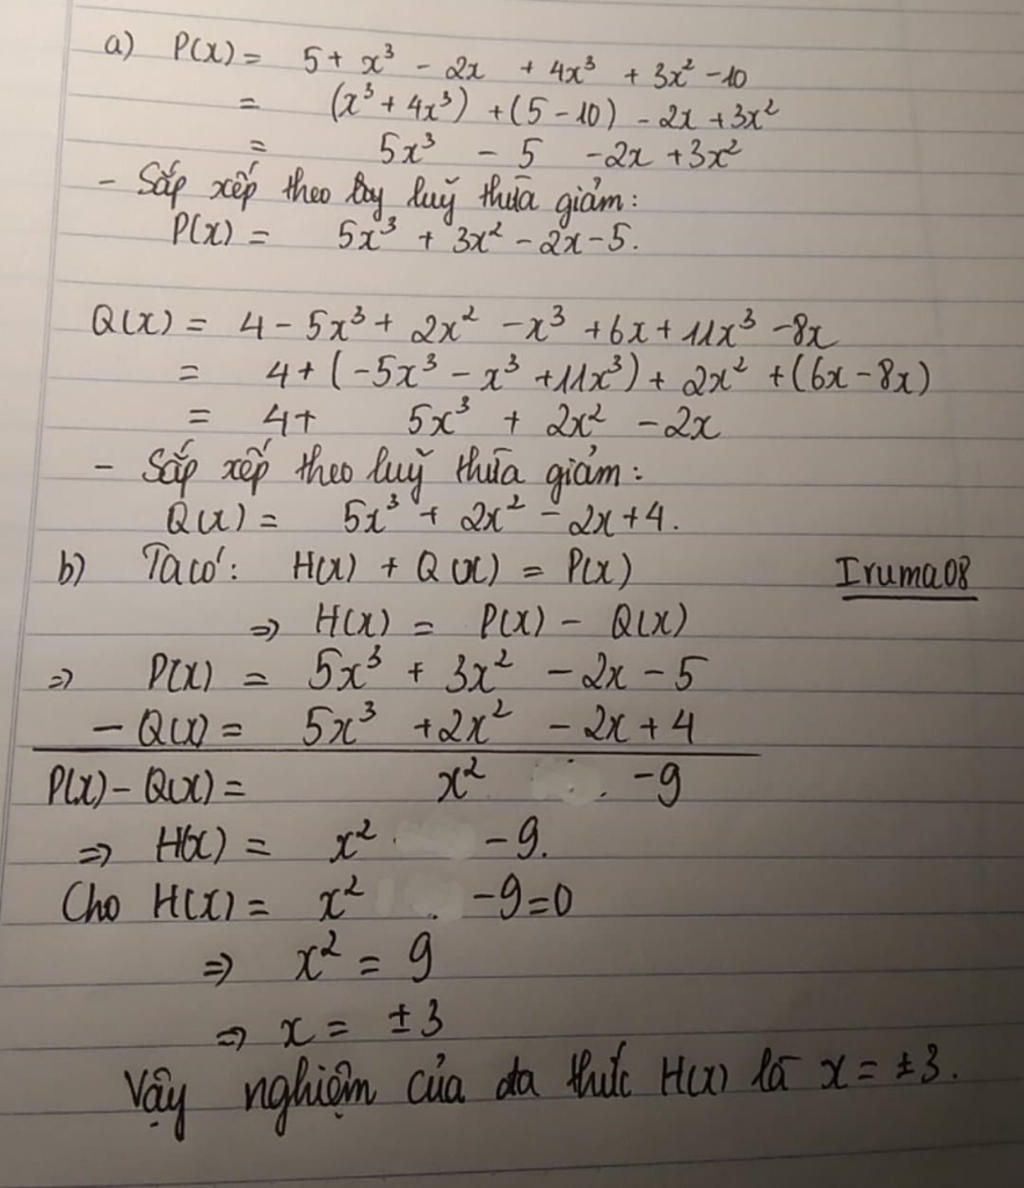 a) P(x) = 5 + x³ - 2x + 4x³ + 3x² - 10
= (x³ + 4x³) + (5 - 10) - 2x + 3x²
= 5x³ - 5 - 2x + 3x²
- Sắp xếp theo luỹ thừa giảm:
P(x) = 5x³ + 3x² - 2x - 5.
Q(x) = 4 - 5x³ + 2x² - x³ + 6x + 11x³ - 8x
= 4 + (-5x³ - x³ + 11x³) + 2x² + (6x - 8x)
= 4 + 5x³ + 2x² - 2x
- Sắp xếp theo luỹ thừa giảm:
Q(x) = 5x³ + 2x² - 2x + 4.
b) Ta có: H(x) + Q(x) = P(x) Iruma08
⇒ H(x) = P(x) - Q(x)
⇒ P(x) = 5x³ + 3x² - 2x - 5
- Q(x) = 5x³ + 2x² - 2x + 4
P(x) - Q(x) = x² - 9
⇒ H(x) = x² - 9.
Cho H(x) = x² - 9 = 0
⇒ x² = 9
⇒ x = ±3
Vậy nghiệm của đa thức H(x) là x = ±3.